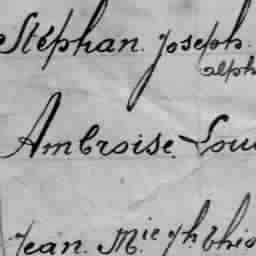 Stéphan. Joseph.
alph
Ambroise. Lou
Jean. M.ie